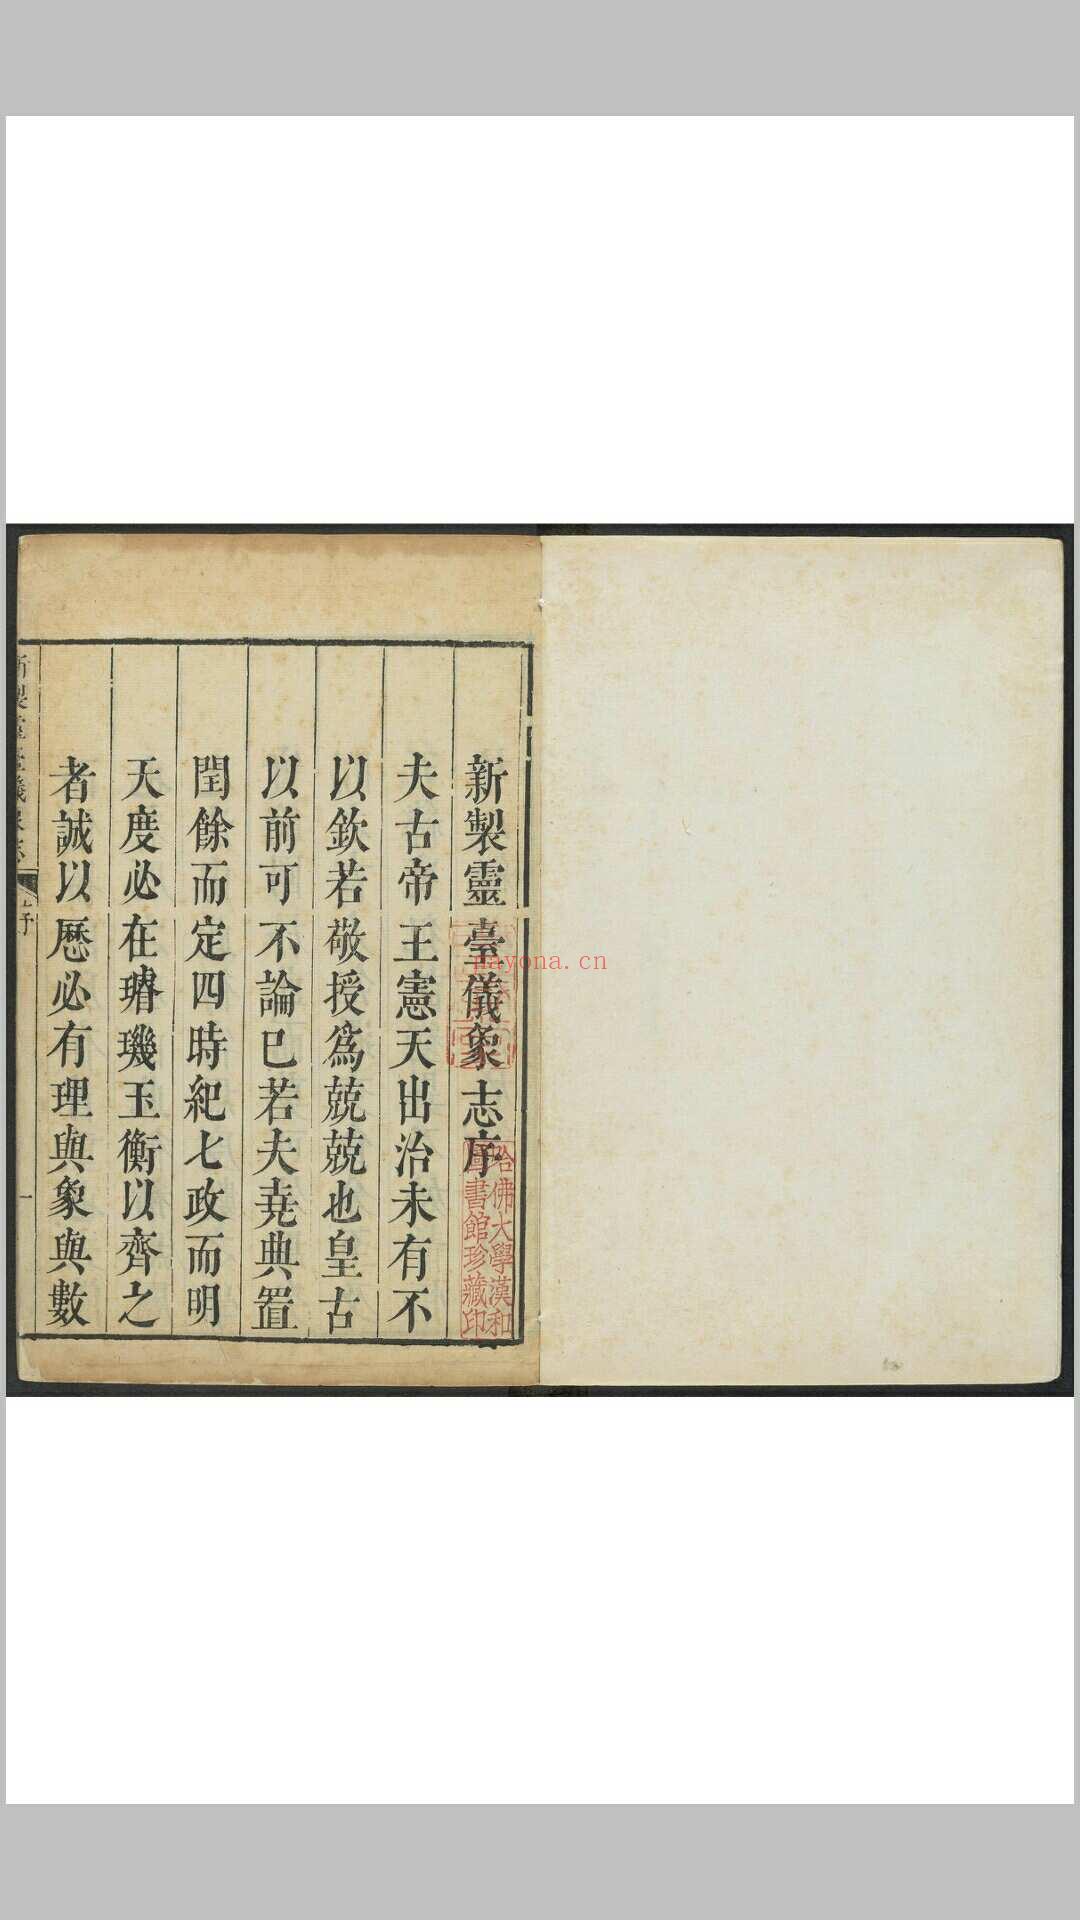 新製靈臺儀象志序
夫古帝王憲天出治未有不
以欽若敬授爲兢兢也皇古
以前可不論已若夫堯典置
閏餘而定四時紀七政而明
天度必在璿璣玉衡以齊之
者誠以曆必有理與象與數
新製靈臺儀象志
序
一
哈佛大學漢和
圖書館珍藏印
nayona.cn